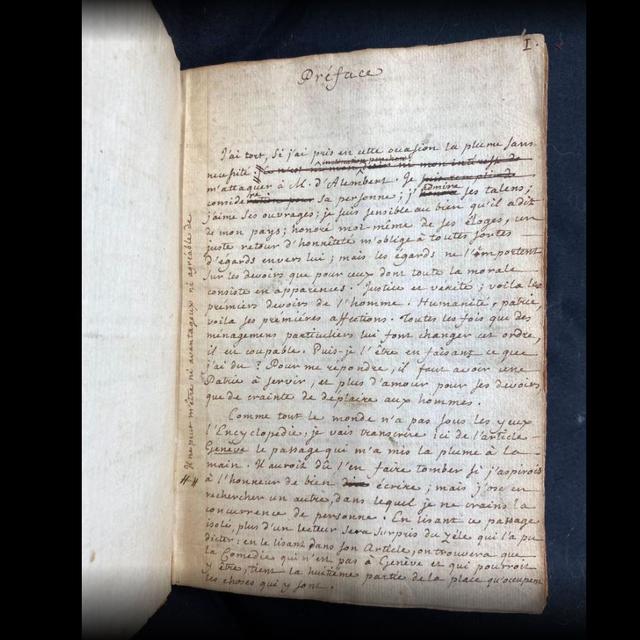 I.
Préface
J'ai tort, si j'ai pris en cette occasion la plume sans
necessité.
m'attaquer à M. d'Alembert. Je
considére sa personne; j'admire ses talens;
j'aime ses ouvrages; je suis sensible au bien qu'il a dit
de mon pays; honoré moi-même de ses éloges, un
juste retour d'honnêteté m'oblige à toutes sortes
d'égards envers lui; mais les égards ne l'emportent
sur les devoirs que pour ceux dont toute la morale
consiste en apparences. Justice et vérité; voila les
prémiers devoirs de l'homme. Humanité, patrie
voila ses premiéres affections. Toutes les fois que des
ménagemens particuliers lui font changer cet ordre,
il est coupable. Puis-je l'être en faisant ce que
j'ai du? Pour me repondre, il faut avoir une
Patrie à servir, et plus d'amour pour ses devoirs
que de crainte de déplaire aux hommes.
Comme tout le monde n'a pas sous les yeux
l'Encyclopédie, je vais transcrire ici de l'article
Genéve le passage qui m'a mis la plume à la
main. Il auroit dû l'en faire tomber si j'aspirois
à l'honneur de bien écrire; mais j'ose en
rechercher un autre, dans lequel je ne crains la
concurrence de personne. En lisant ce passage
isolé, plus d'un lecteur sera surpris du zéle qui l'a pu
dicter: en le lisant dans son Article, on trouvera que
la Comédie qui n'est pas à Genéve et qui pourroit
y être, tient la huitiéme partie de la place qu'occupent
les choses qui y sont.
# Je ne peut m'être ni avantageux ni agréable de